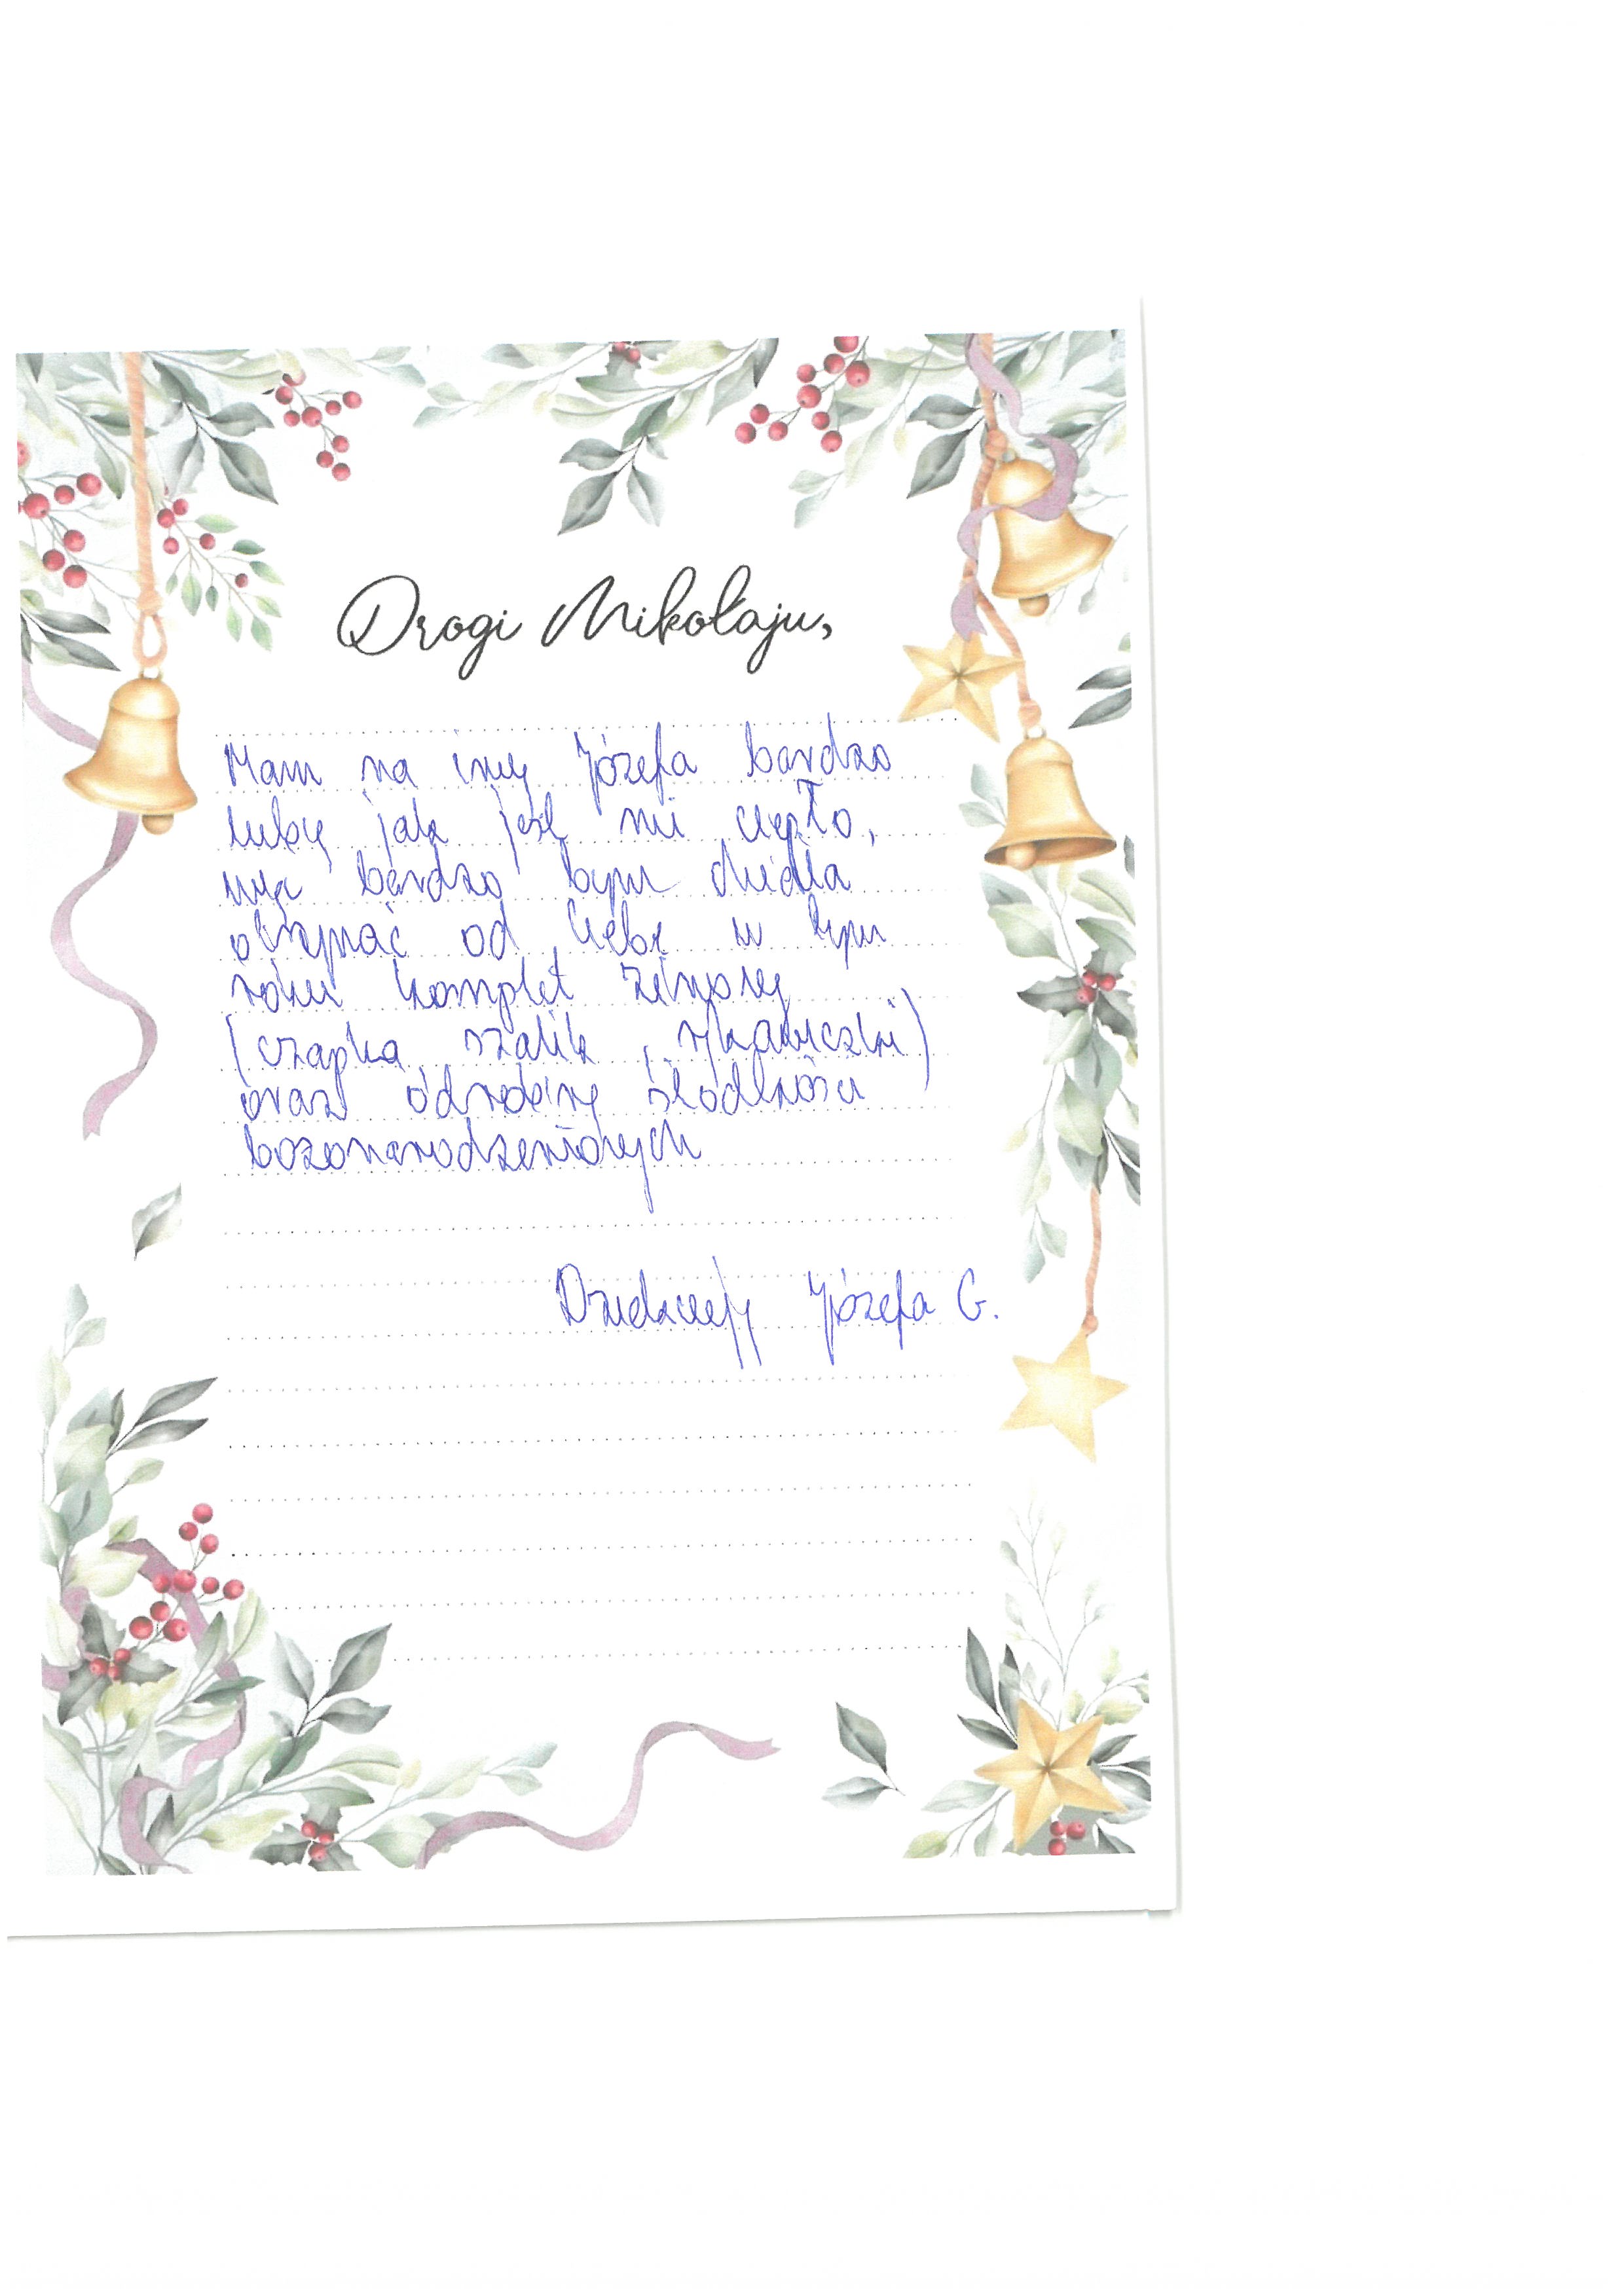 Drogi Mikołaju,
Mam na imię Józefa bardzo
lubię jak jest mi ciepło,
więc bardzo bym chciała
otrzymać od Ciebie w tym
roku komplet zimowy
(czapka szalik, rękawiczki)
oraz odrobinę słodkości
bożonarodzeniowych
Dziękuję Józefa G.